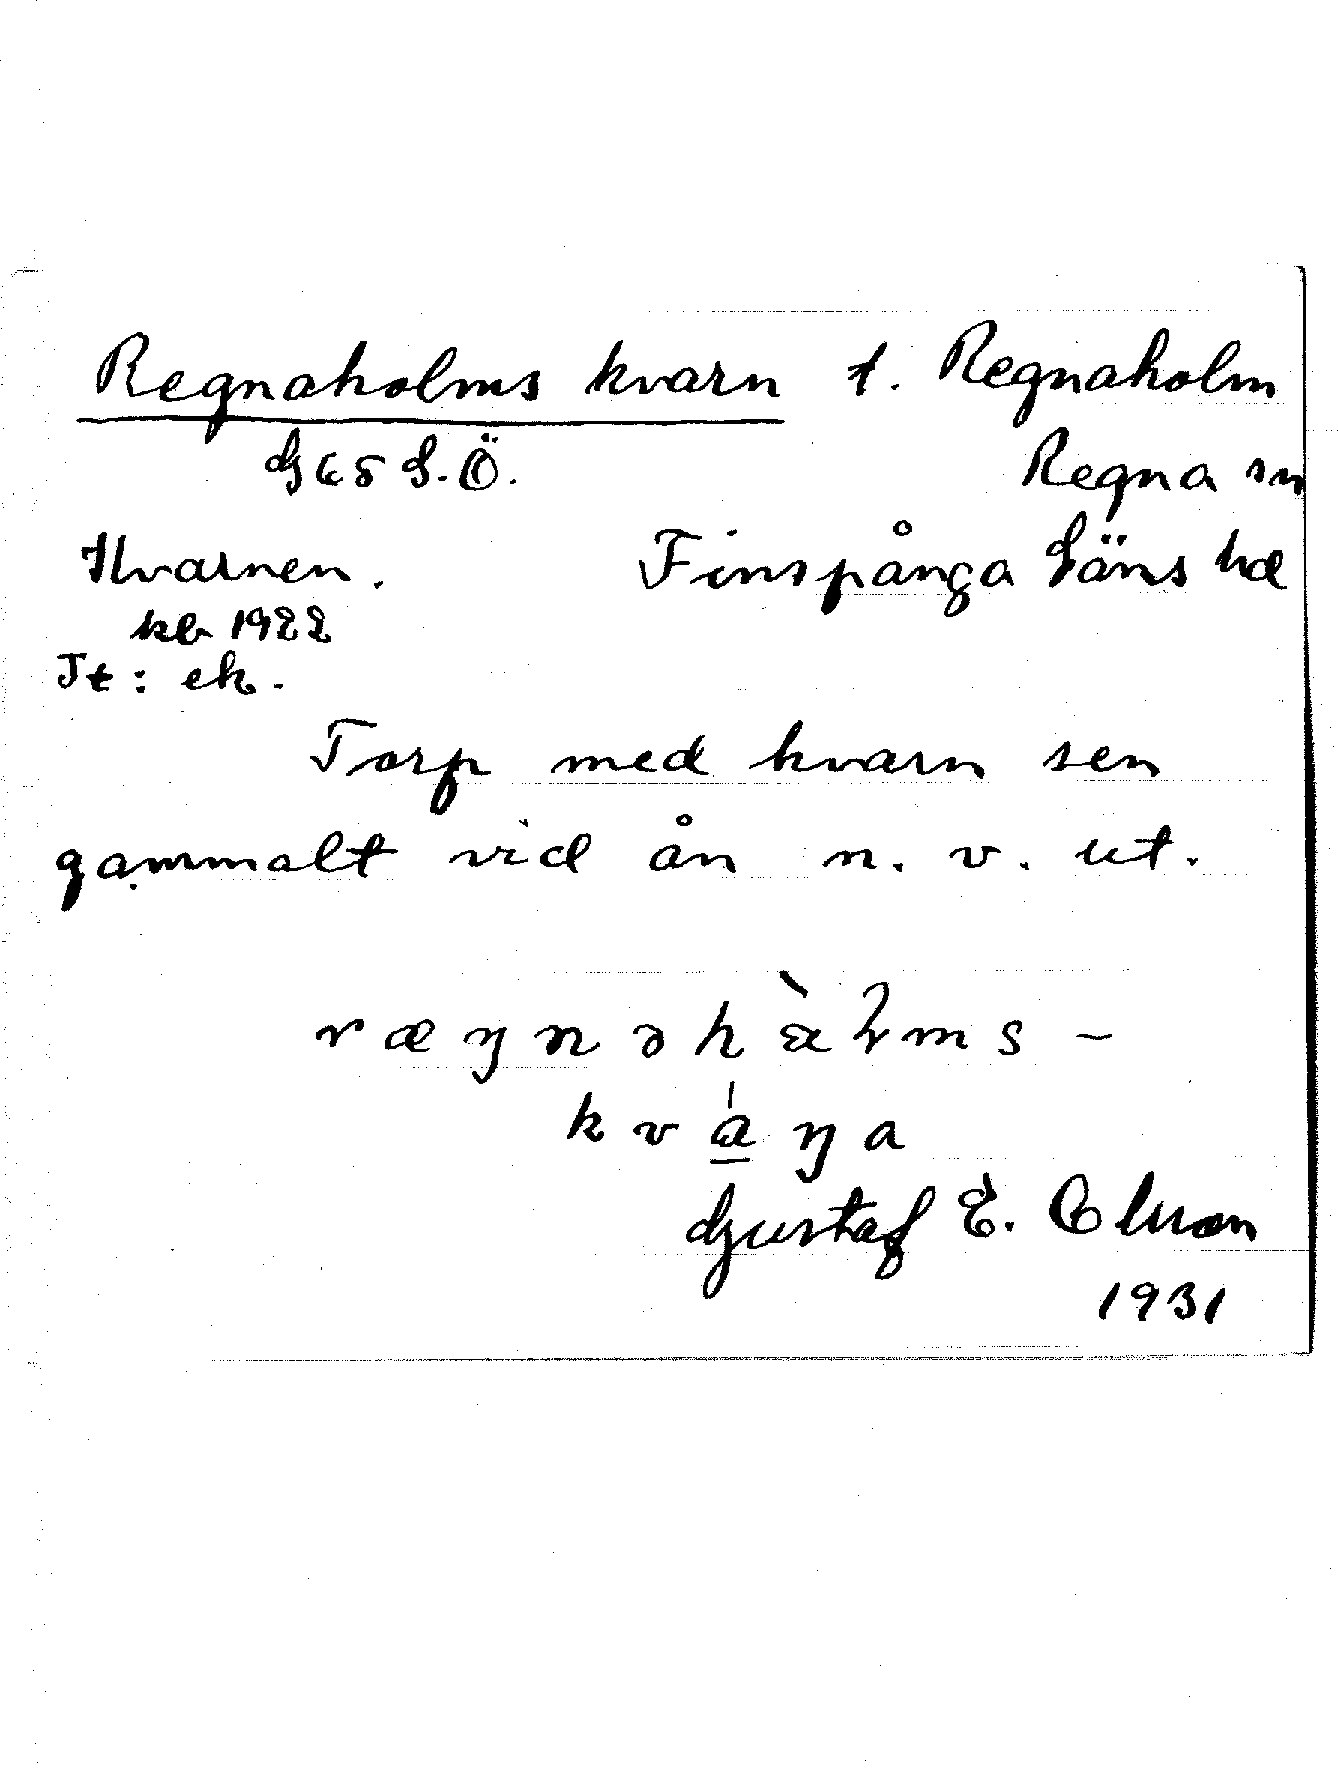 Regnaholms kvarn t. Regnaholm
G 65 S.Ö. Regna sn
Kvarnen. Finspånga Läns hd
kb 1922
Jt: ek.
Torp med kvarn sen
gammalt vid ån n. v. ut.
Gustaf E.
1931